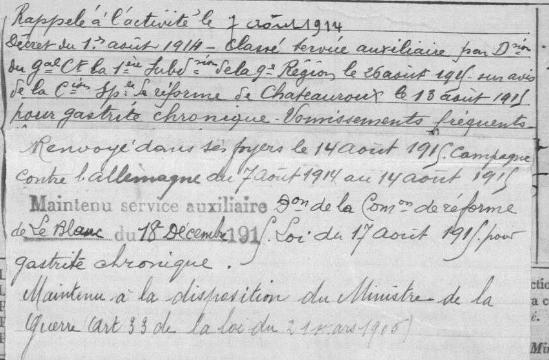 Rappelé à l'activité le 7 août 1914
Décret du 1er août 1914 – Classé service auxiliaire par Dion
du gal Ct la 1ère Subdnion de la 9e Région le 26 août 1915 sur avis
de la Cion Sple de réforme de Chateauroux le 13 août 1915
pour gastrite chronique - Vomissements fréquents
Renvoyé dans ses foyers le 14 août 1915. Campagne
contre l'allemagne du 7 août 1914 au 14 août 1915
Maintenu service auxiliaire Don de la Comon de réforme
de Le Blanc du 18 Décembre 1915. Loi du 17 août 1915 pour
gastrite chronique.
Maintenu à la disposition du Ministre de la
Guerre (art 33 de la loi du 21 mars 1905)